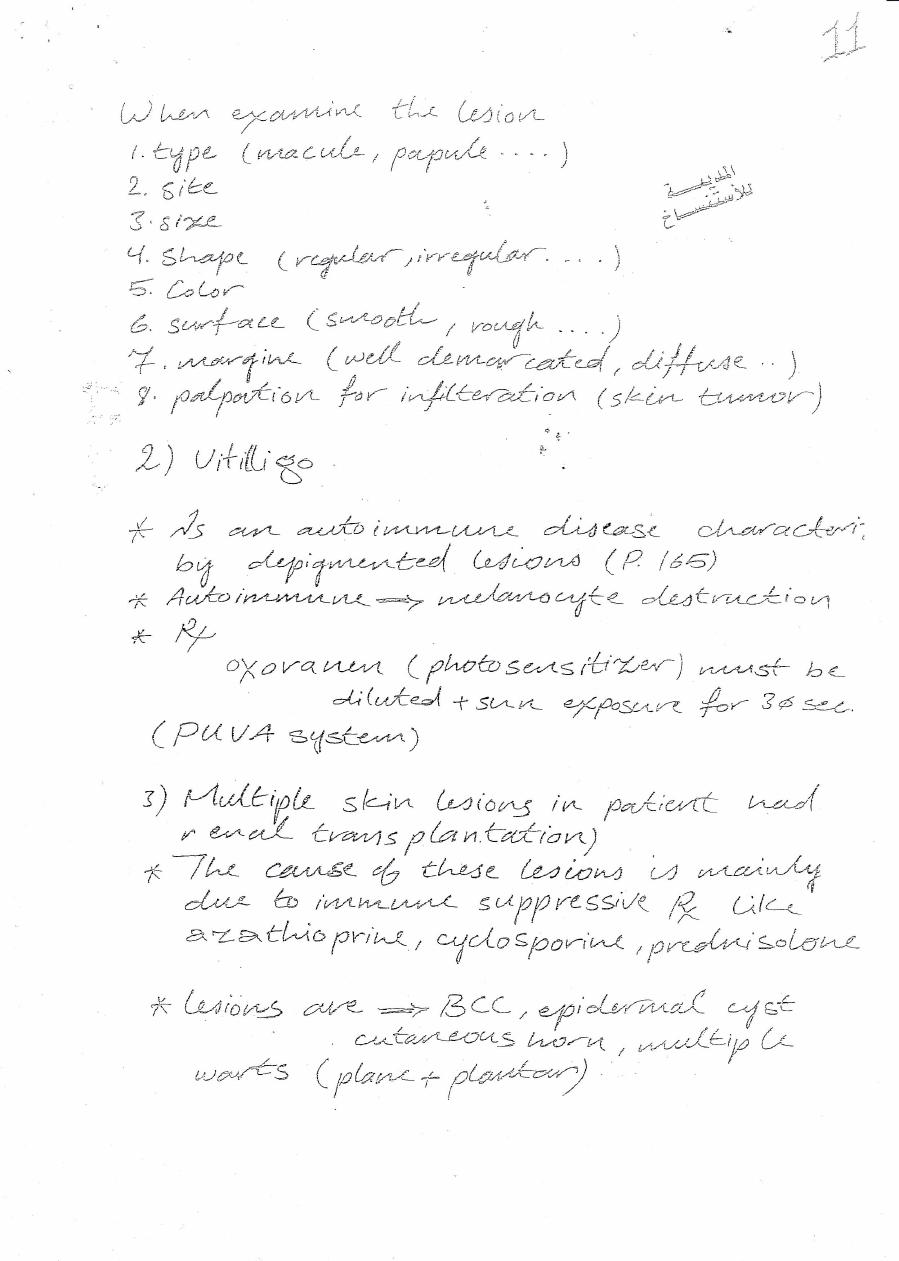 11
When examine the lesion
1. type (macule, papule ....)
المدينة
للأستنساخ
2. site
3. size
4. shape (regular, irregular ....)
5. Color
6. surface (smooth, rough ....)
7. margine (well demarcated, diffuse ..)
8. palpation for infilteration (skin tumor)
2) Vitilligo
* Is an autoimmune disease characteri
by depigmented lesions (P. 165)
* Autoimmune ⇒ melanocyte destruction
* Rx
oxoranen (photosensitizer) must be
diluted + sun exposure for 30 sec.
(PUVA system)
3) Multiple skin lesions in patient had
renal transplantation)
* The cause of these lesions is mainly
due to immune suppressive Rx like
azathioprine, cyclosporine, prednisolone
* lesions are ⇒ BCC, epidermal cyst
cutaneous horn, multiple
warts (plane + plantar)